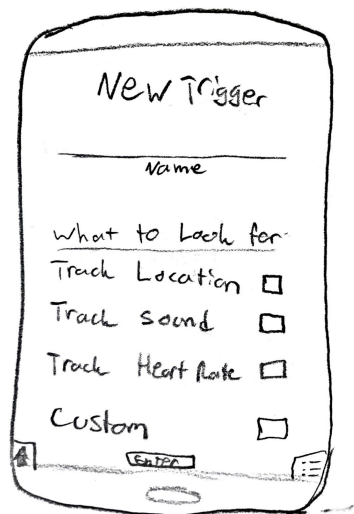 New Trigger
Name
What to Look for
Track Location
Track Sound
Track Heart Rate
Custom
Enter